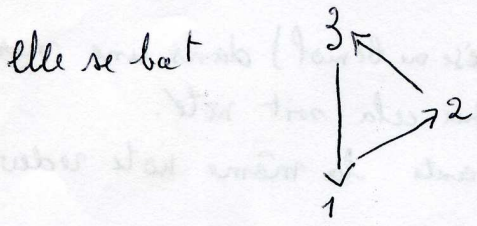 elle se bat
3
2
1